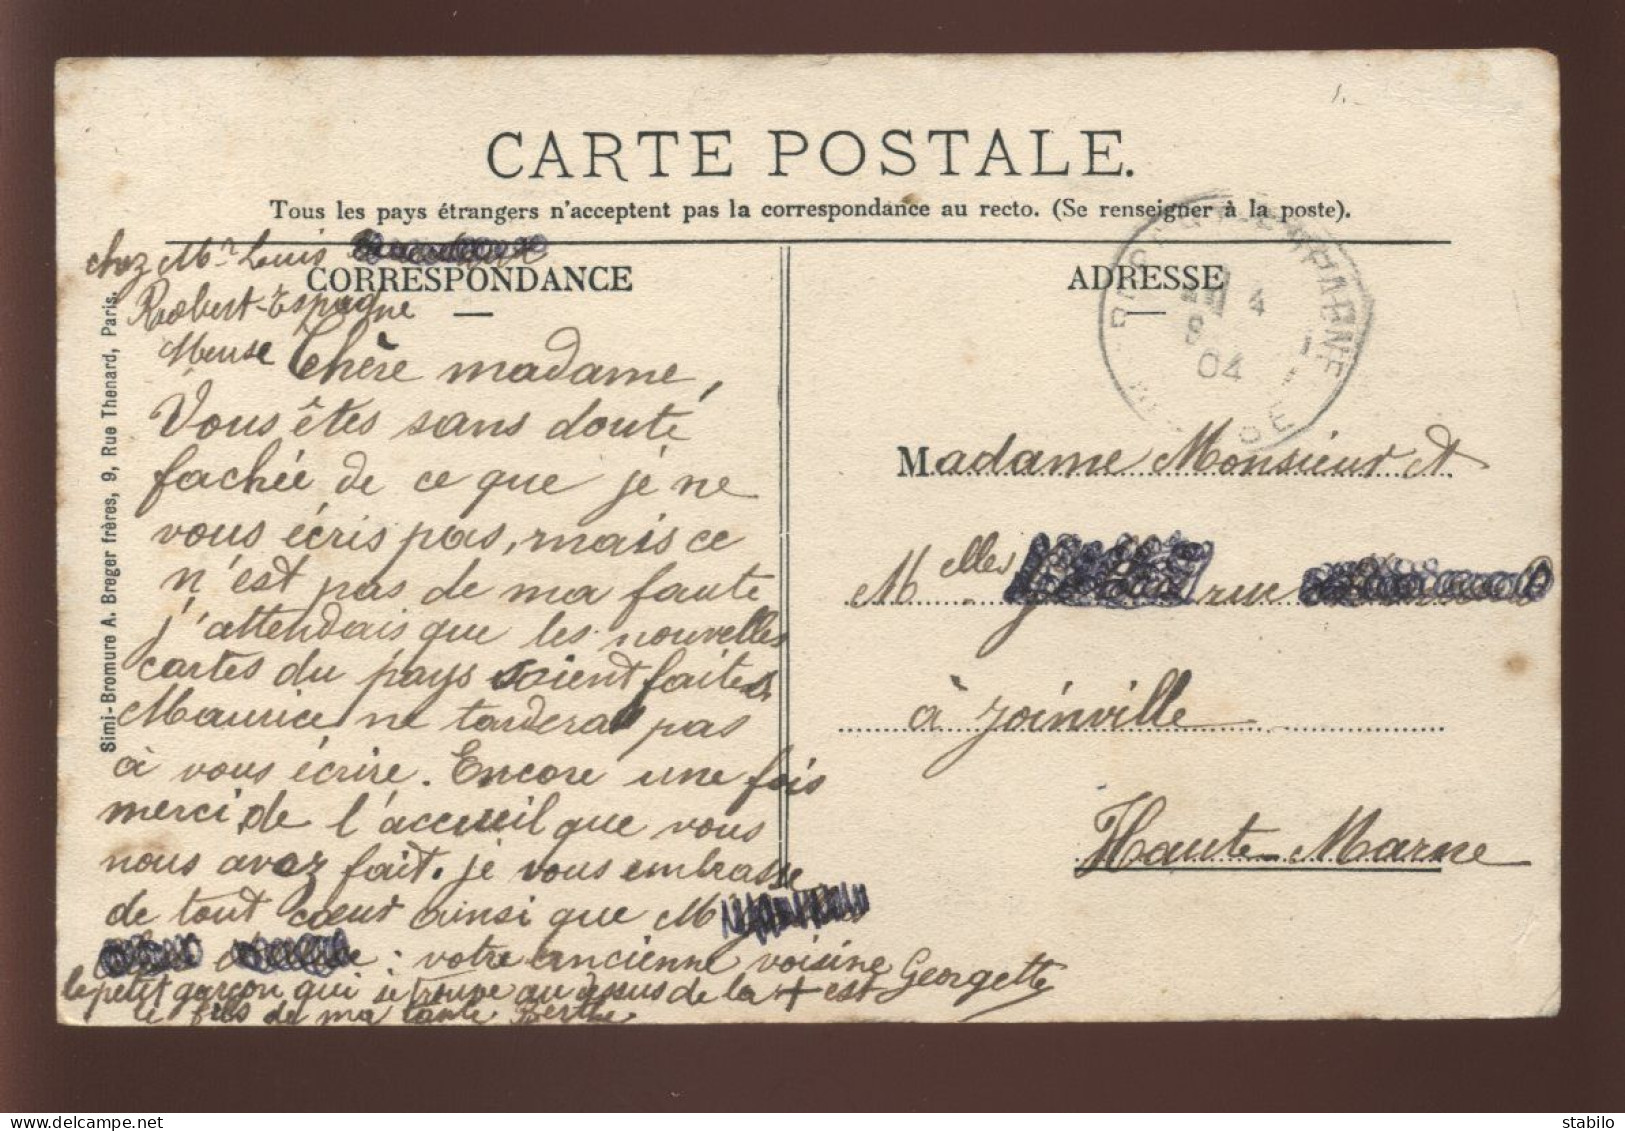 CARTE POSTALE.
Tous les pays étrangers n'acceptent pas la correspondance au recto. (Se renseigner à la poste).
chez Mr Louis
CORRESPONDANCE
Robert-Espagne
Meuse
Chère madame,
Vous êtes sans doute
fachée de ce que je ne
vous écris pas, mais ce
n'est pas de ma faute
j'attendais que les nouvelles
cartes du pays soient faites
Maurice ne tardera pas
à vous écrire. Encore une fois
merci de l'accueil que vous
nous avez fait. je vous embrasse
de tout cœur ainsi que M
: votre ancienne voisine Georgette
le petit garçon qui se trouve au dessus de la + est
le fils de ma tante Berthe
Simi-Bromure A. Breger frères, 9, Rue Thenard, Paris.
ADRESSE
4
9
04
Madame Monsieur et
Melles rue
à Joinville
Haute-Marne
delcampe.net
stabilo